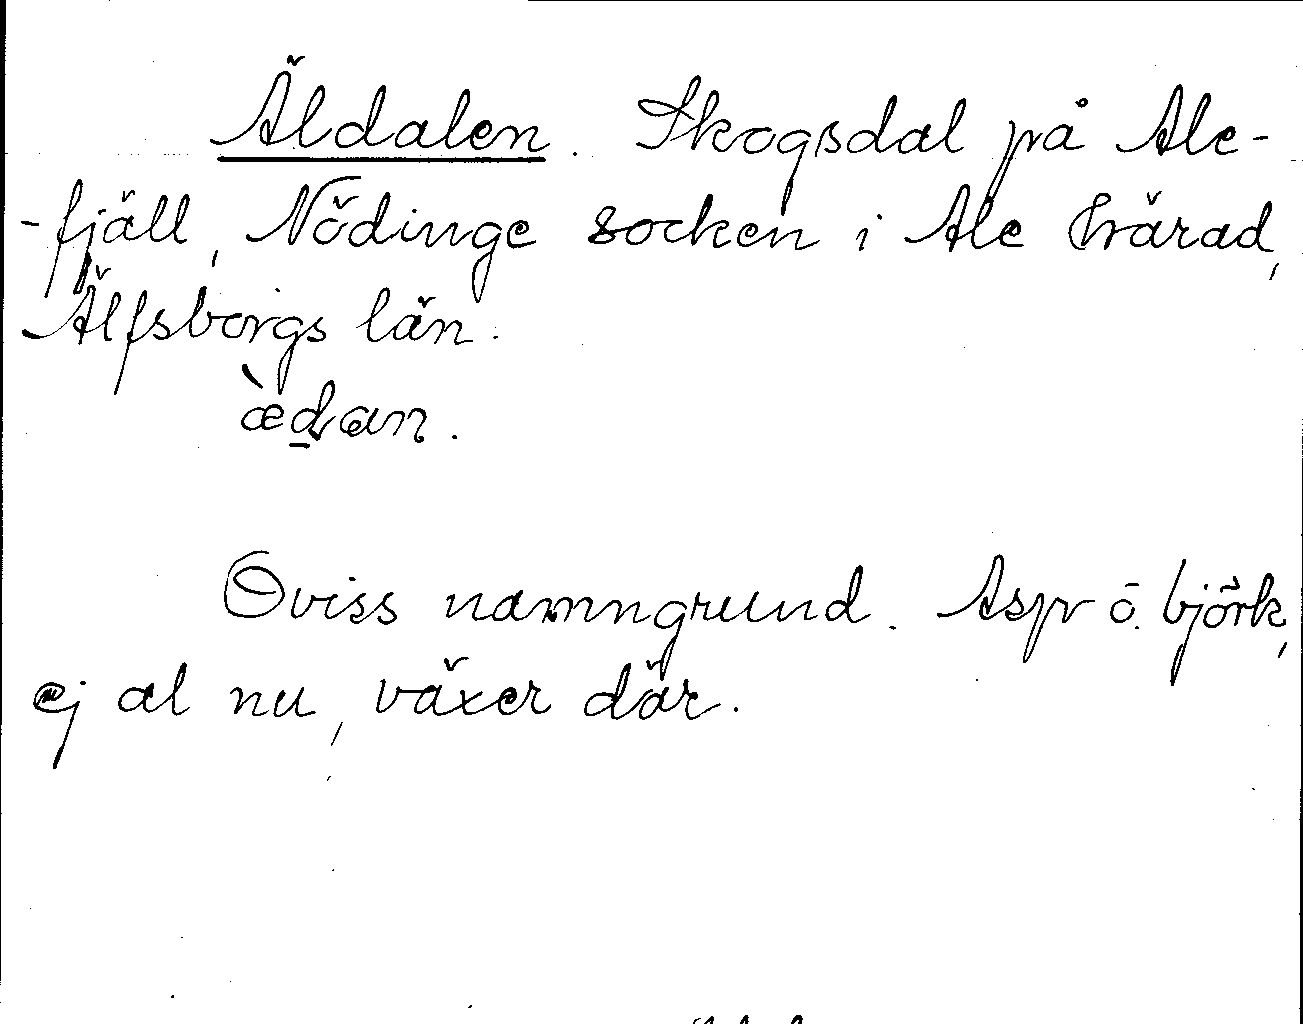 Äldalen. Skogsdal på Ale-
-fjäll, Nödinge socken i Ale härad,
Älfsborgs län.
æ̀dan.
Oviss namngrund. Asp o. björk,
ej al nu, växer där.